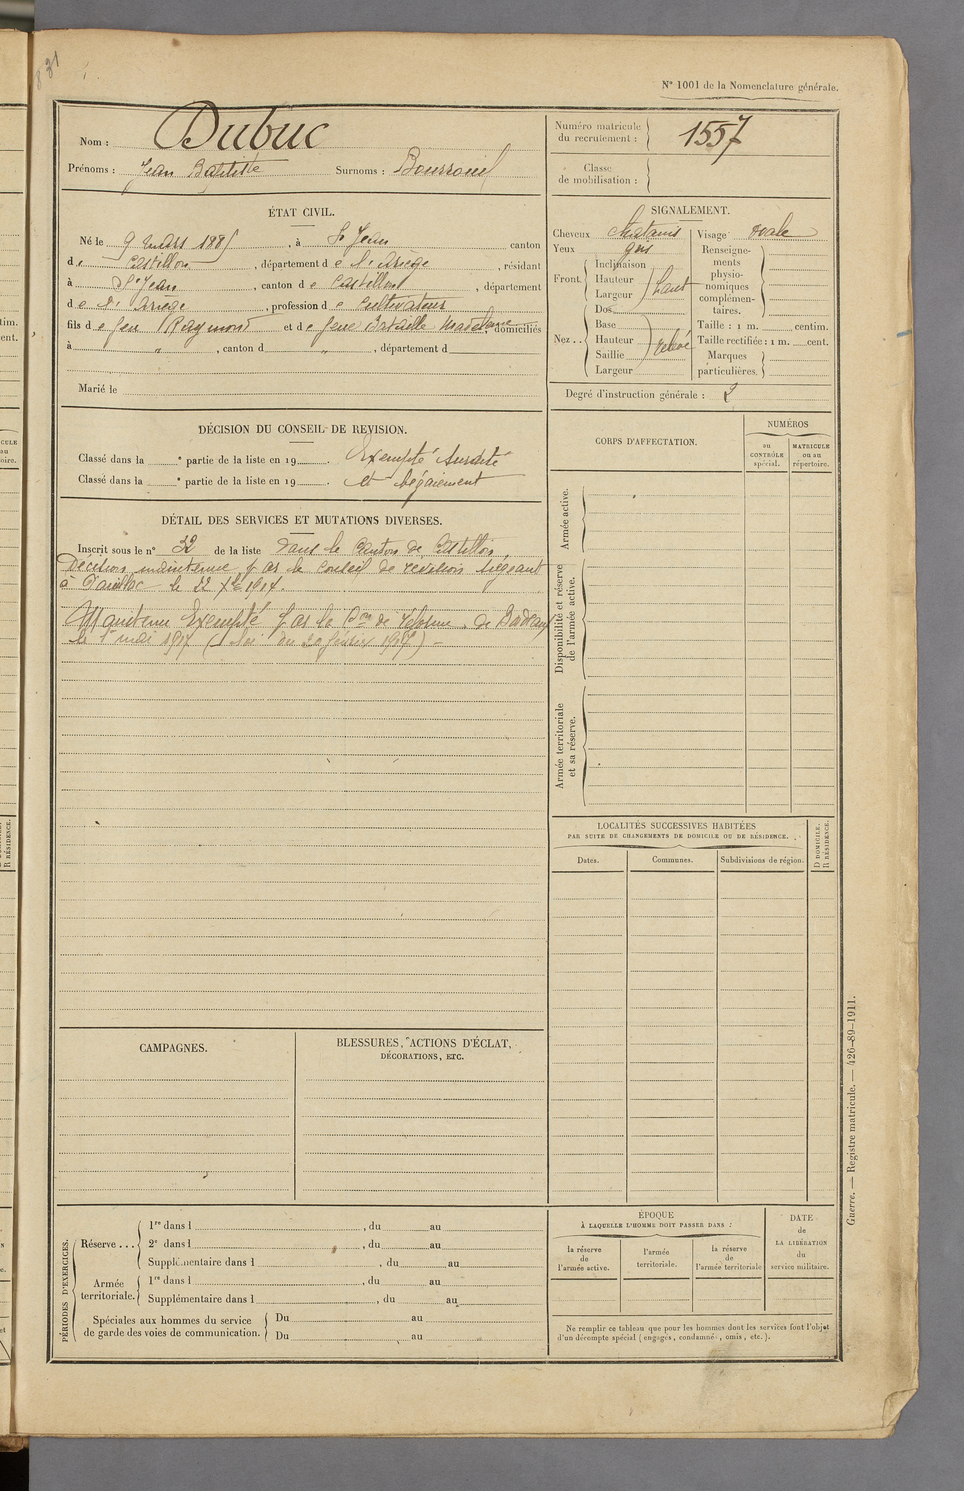 831
N° 1001 de la Nomenclature générale.
Nom : Dubuc
Prénoms : Jean Baptiste Surnoms : Bourrouil
Numéro matricule du recrutement : 1557
Classe de mobilisation :
ÉTAT CIVIL.
Né le 9 mars 1885, à St Jean canton
de Castillon, département de l'Ariège, résidant
à St Jean, canton de Castillon, département
de l'Ariège, profession de Cultivateur
fils de feu Raymond et de feue Bataille Madeleine, domiciliés
à " , canton d " , département d
Marié le
SIGNALEMENT.
Cheveux chatains Visage ovale
Yeux gris
Front. Inclinaison
Hauteur haut
Largeur
Nez .. Dos
Base
Hauteur relevé
Saillie
Largeur
Renseigne-
ments
physio-
nomiques
complémen-
taires.
Taille : 1 m. centim.
Taille rectifiée : 1 m. cent.
Marques
particulières.
Degré d'instruction générale : 2
DÉCISION DU CONSEIL DE REVISION.
Classé dans la e partie de la liste en 19 . Exempté Surdité
Classé dans la e partie de la liste en 19 . et bégaiement
CORPS D'AFFECTATION.
NUMÉROS
au CONTRÔLE spécial.
MATRICULE ou au répertoire.
Armée active.
Disponibilité et réserve de l'armée active.
Armée territoriale et sa réserve.
DÉTAIL DES SERVICES ET MUTATIONS DIVERSES.
Inscrit sous le n° 32 de la liste dans le Canton de Castillon.
Décision maintenue par le conseil de revision siégeant
à le 22 Xbre 1914.
Maintenu Exempté par la Con de Réforme de
le 1er mai 1917 (Loi du 20 février 1917) -
LOCALITÉS SUCCESSIVES HABITÉES
PAR SUITE DE CHANGEMENTS DE DOMICILE OU DE RÉSIDENCE.
Dates.
Communes.
Subdivisions de région.
D DOMICILE.
R RÉSIDENCE.
CAMPAGNES.
BLESSURES, ACTIONS D'ÉCLAT,
DÉCORATIONS, ETC.
PÉRIODES D'EXERCICES.
Réserve ... 1re dans l , du au
2e dans l , du au
Supplémentaire dans l , du au
Armée territoriale. 1re dans l , du au
Supplémentaire dans l , du au
Spéciales aux hommes du service
de garde des voies de communication. Du au
Du au
ÉPOQUE
À LAQUELLE L'HOMME DOIT PASSER DANS :
la réserve de l'armée active.
l'armée territoriale.
la réserve de l'armée territoriale
DATE de LA LIBÉRATION du service militaire.
Ne remplir ce tableau que pour les hommes dont les services font l'objet
d'un décompte spécial (engagés, condamnés, omis, etc.).
Guerre. — Registre matricule. — 426-89-1911.